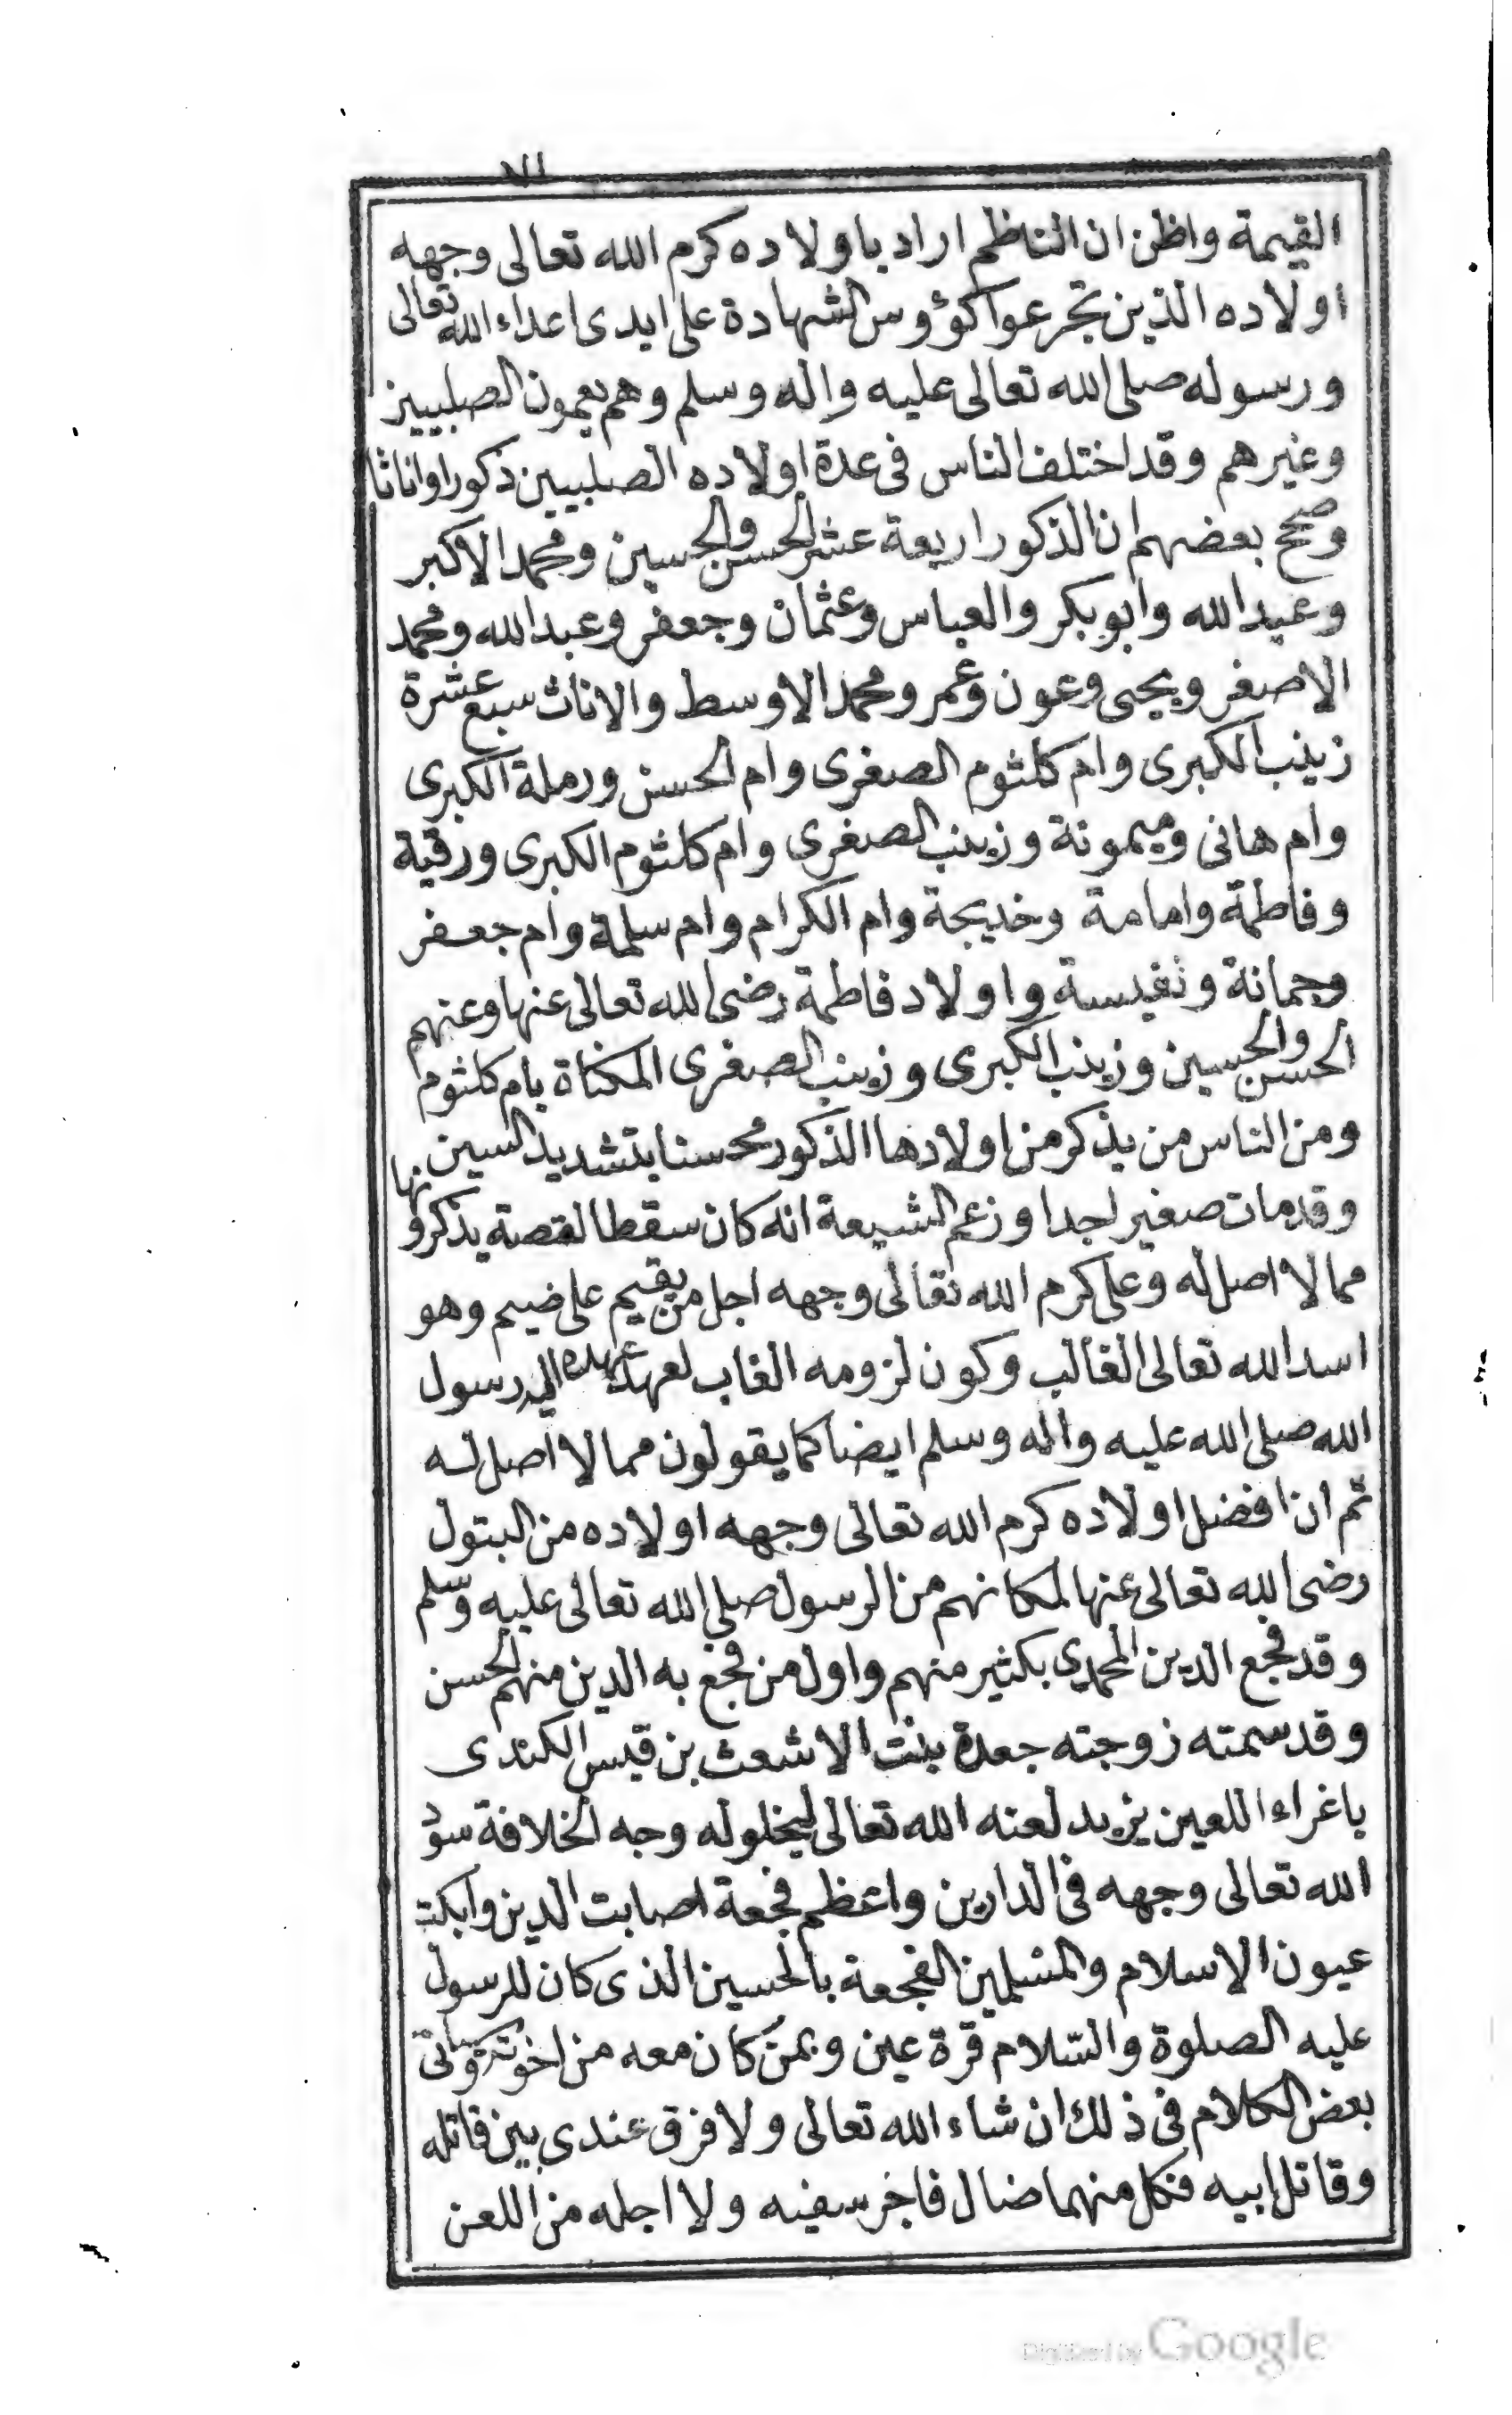 القيمة واظن ان الناظم اراد باولاده كرم الله تعالى وجهه
اولاده الذين تجرعوا كؤوس الشهادة على ايدى اعداء الله تعالى
ورسوله صلى الله تعالى عليه واله وسلم وهم يعمون الصلبيين
وغيرهم وقد اختلف الناس فى عدة اولاده الصلبيين ذكورا واناثا
وصحح بعضهم ان الذكور اربعة عشر الحسن والحسين ومحمد الاكبر
وعبيد الله وابو بكر والعباس وعثمان وجعفر وعبد الله ومحمد
الاصغر ويحيى وعون وعمر ومحمد الاوسط والاناث سبع عشرة
زينب الكبرى وام كلثوم الصغرى وام الحسن ورملة الكبرى
وام هانى وميمونة وزينب الصغرى وام كلثوم الكبرى ورقية
وفاطمة وامامة وخديجة وام الكرام وام سلمة وام جعفر
وجمانة ونفيسة واولاد فاطمة رضى الله تعالى عنها وعنهم
الحسن والحسين وزينب الكبرى وزينب الصغرى المكناة بام كلثوم
ومن الناس من يذكر من اولادها الذكور محسنا بتشديد السين
وقد مات صغيرا جدا وزعم الشيعة انه كان سقطا لقصة يذكرونها
مما لا اصل له وعلى كرم الله تعالى وجهه اجل من يقيم على ضيم وهو
اسد الله تعالى الغالب وكون لزومه الغاب لعهد عهده اليه رسول
الله صلى الله عليه واله وسلم ايضا كما يقولون مما لا اصل له
ثم ان افضل اولاده كرم الله تعالى وجهه اولاده من البتول
رضى الله تعالى عنها لمكانهم من الرسول صلى الله تعالى عليه وسلم
وقد فجع الدين المحمدى بكثير منهم واول من فجع به الدين منهم الحسن
وقد سمته زوجته جعدة بنت الاشعث بن قيس الكندى
باغراء اللعين يزيد لعنه الله تعالى ليخلو له وجه الخلافة سود
الله تعالى وجهه فى الدارين واعظم فجعة اصابت الدين وابكت
عيون الاسلام والمسلمين الفجعة بالحسين الذى كان للرسول
عليه الصلوة والسلام قرة عين وبمن كان معه من اخوته وسياتى
بعض الكلام فى ذلك ان شاء الله تعالى ولا فرق عندى بين قاتله
وقاتل ابيه فكل منهما ضال فاجر سفيه ولا اجله من اللعن
Digitized by Google